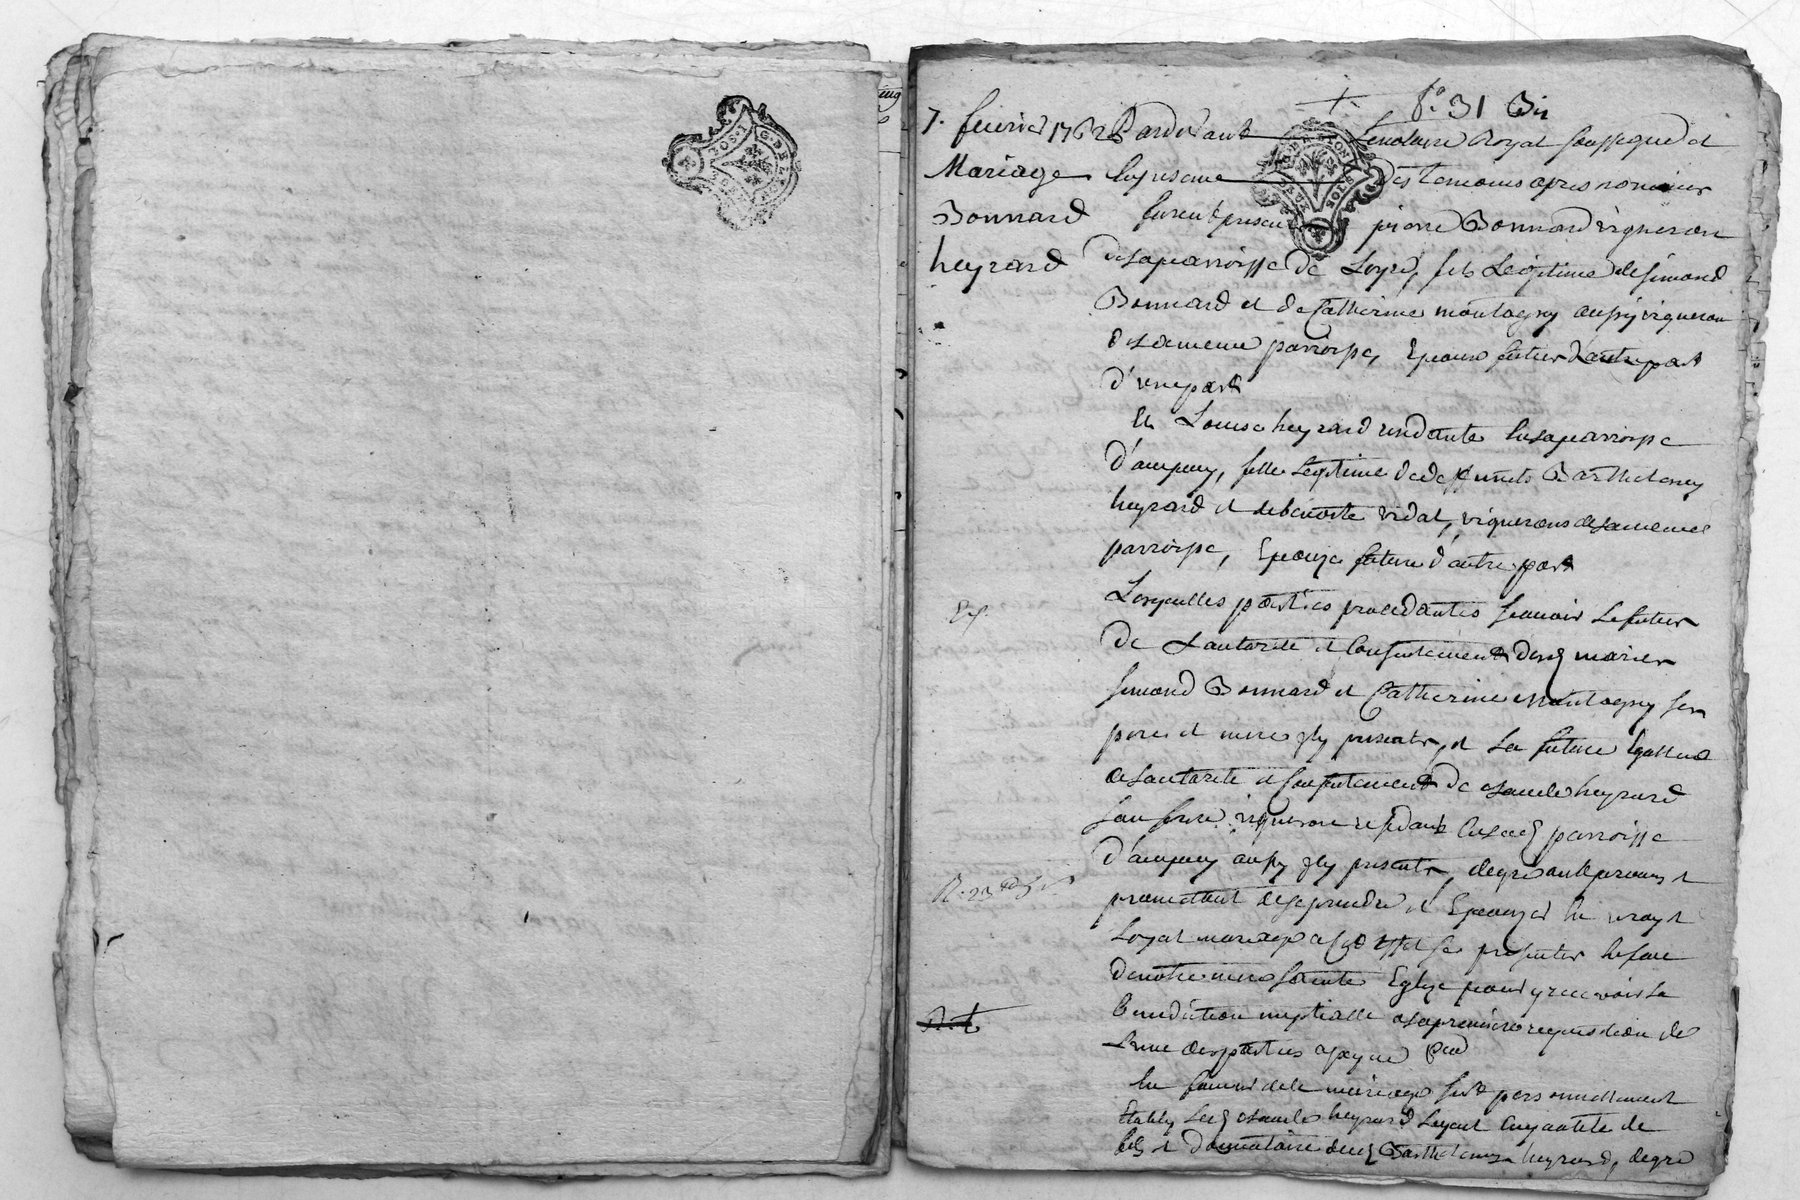 fo. 31 Bis
7. fevrier 1762
Mariage
Bonnard
heyrard
Pardevant Le notaire Royal soussigné et
En presence Des temoins apres nommés
furent presens pierre Bonnard vigneron
de la parroisse De Loyre, fils Legitime de Simond
Bonnard et de Catherine montagny aussy vignerons
de la meme parroisse, Epoux futur d'autre part
d'une part
Et Louise heyrard residante en la parroisse
d'ampuy, fille Legitime de deffunts Barthelemy
heyrard et de benoite vidal, vignerons de la meme
parroisse, Epouze future d'autre part
Lesquelles parties procedantes scavoir Le futur
De L'autorité et Consentement desd mariés
simond Bonnard et Catherine Montagny ses
pere et mere icy presents, et La future
de L'autorité et Consentement De heyrard
son frere vigneron residant en lad parroisse
d'ampuy aussy icy present, de gré ont promis et
promettent de se prendre et Epouzer en vray et
Loyal mariage a cet effet se presenter en face
De notre mere sainte Eglize pour y recevoir La
Benediction nuptialle a la premiere requisition de
L'une des parties a peyne
En faveur de ce mariage s'est personnellement
Etably Led heyrard Lequel En qualité de
fils et Donnataire dud Barthelemy heyrard, de gré